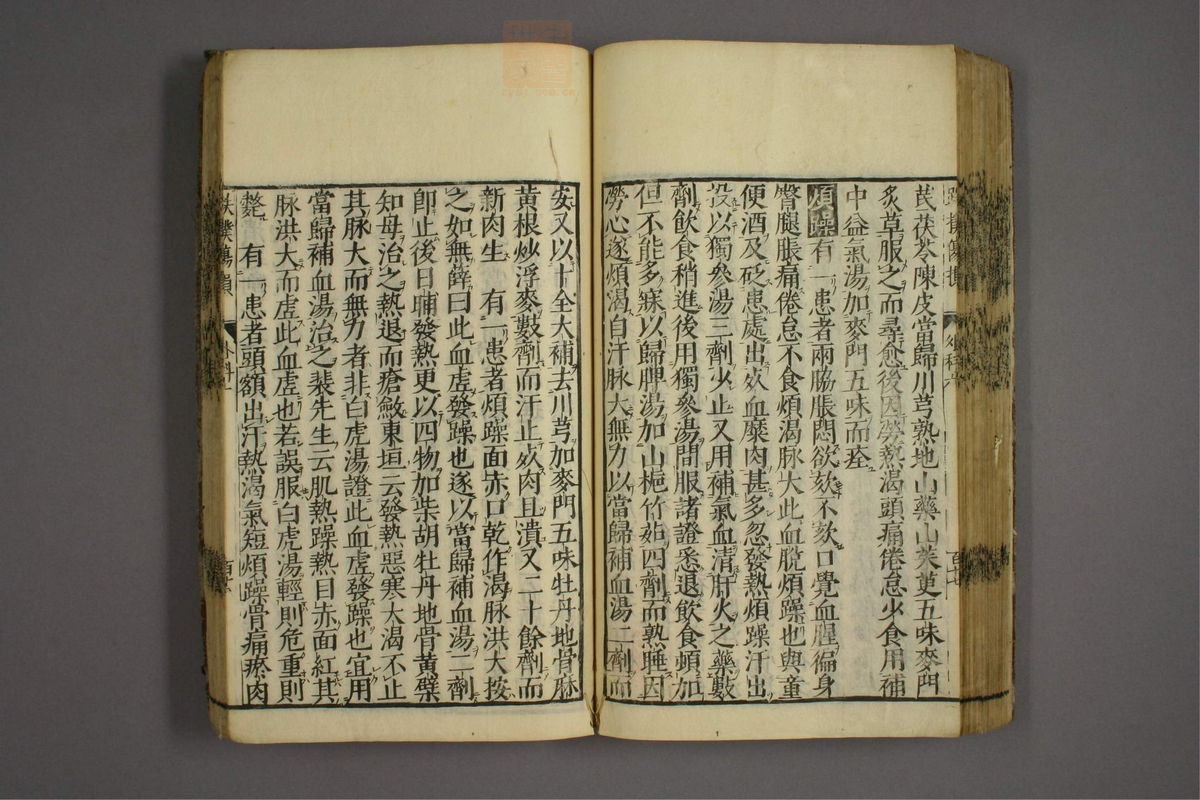 芪茯苓陳皮當歸川芎熟地山藥山茱萸五味麥門
炙草服之而尋愈後因勞熱渴頭痛倦怠少食用補
中益氣湯加麥門五味而痊
煩躁有一患者兩脇脹悶欲欬不欬口覺血腥徧身
臀腿脹痛倦怠不食煩渴脉大此血脫煩躁也與童
便酒及砭患處出㱙血糜肉甚多忽發熱煩躁汗出
投以獨參湯三劑少止又用補氣血清肝火之藥數
劑飲食稍進後用獨參湯間服諸證悉退飲食頓加
但不能多寐以歸脾湯加山梔竹茹四劑而熟睡因
勞心遂煩渴自汗脉大無力以當歸補血湯二劑而
安又以十全大補去川芎加麥門五味牡丹地骨麻
黃根炒浮麥數劑而汗止㱙肉且潰又二十餘劑而
新肉生 有一患者煩躁面赤口乾作渴脉洪大按
之如無薛曰此血虛發躁也遂以當歸補血湯二劑
卽止後日晡發熱更以四物加柴胡牡丹地骨黃檗
知母治之熱退而瘡斂東垣云發熱惡寒大渴不止
其脉大而無力者非白虎湯證此血虛發躁也宜用
當歸補血湯治之裴先生云肌熱躁熱目赤面紅其
脉洪大而虛此血虛也若誤服白虎湯輕則危重則
斃 有一患者頭額出汗熱渴氣短煩躁骨痛瘀肉
跌撲傷損 外科